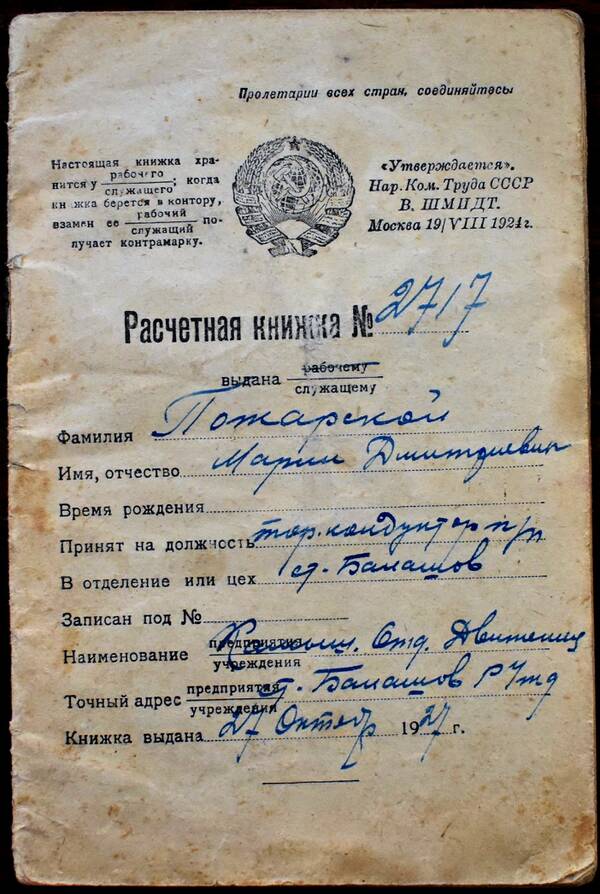 Пролетарии всех стран, соединяйтесь
Настоящая книжка хра-
нится у рабочего служащего; когда
книжка берется в контору,
взамен ее рабочий служащий по-
лучает контрамарку.
«Утверждается».
Нар. Ком. Труда СССР
В. ШМИДТ.
Москва 19/VIII 1924 г.
Расчетная книжка № 2717
выдана рабочему служащему
Фамилия Пожарской
Имя, отчество Марии Дмитриевны
Время рождения
Принят на должность кондуктор
В отделение или цех ст. Балашов
Записан под №
Наименование предприятия учреждения Отд. Движения
Точный адрес предприятия учреждения ст. Балашов
Книжка выдана 27 Октябр 1927 г.